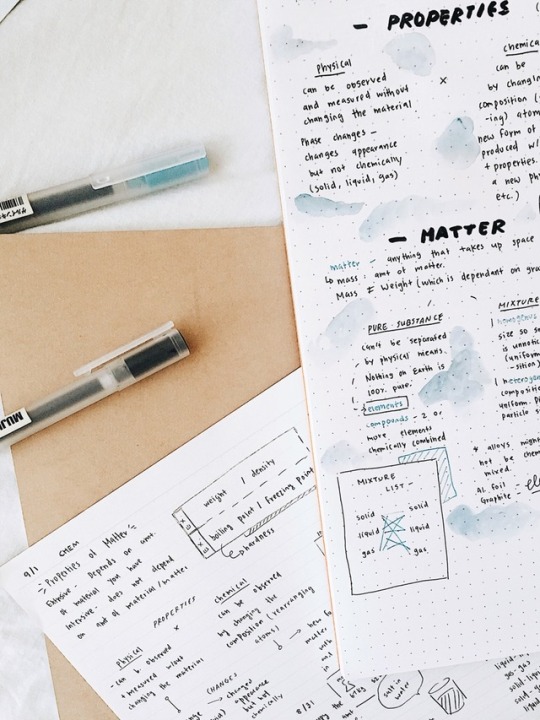 - PROPERTIES
Physical
can be observed
and measured without
changing the material
Phase changes -
changes appearance
but not chemically
(solid, liquid, gas)
x
chemica
can be
by changin
composition (
-ing) atom
new form of
produced w/
+ properties.
a new ph
etc.)
- MATTER
matter - anything that takes up space
↳ mass: amt of matter.
Mass ≠ Weight (which is dependant on gra
PURE SUBSTANCE
can't be separated
by physical means.
Nothing on Earth is
100% pure.
→ elements
compounds - 2 or
more elements
chemically combined
MIXTURE
homogenous
size so s
is unnoti
(uniform
-sition)
heterogen
compositio
uniform. P
particle s
* alloys might
not be chem
mixed.
al foil
Graphite - el
MIXTURE
LIST -
solid solid
liquid liquid
gas gas
MUJI
9/1 CHEM
→ Properties of Matter:
Extensive - Depends on amt
of material you have
Intensive - does not depend
on amt of material/matter
x
x
weight / density
boiling point / freezing point
↳ hardness
PROPERTIES
x
Physical
- can be observed
+ measured w/out
changing the material
chemical
can be observed
by changing the
composition (rearranging
atoms)
CHANGES
→ changed
appearance
but not
chemically
8/31
salt in
water
liquid-